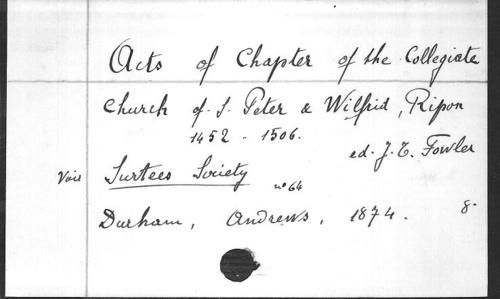 Acts of Chapter of the Collegiate
Church of S. Peter & Wilfrid, Ripon
1452 - 1506.
ed. J. T. Fowler
Voir Surtees Society nº 64
Durham, Andrews, 1874. 8º